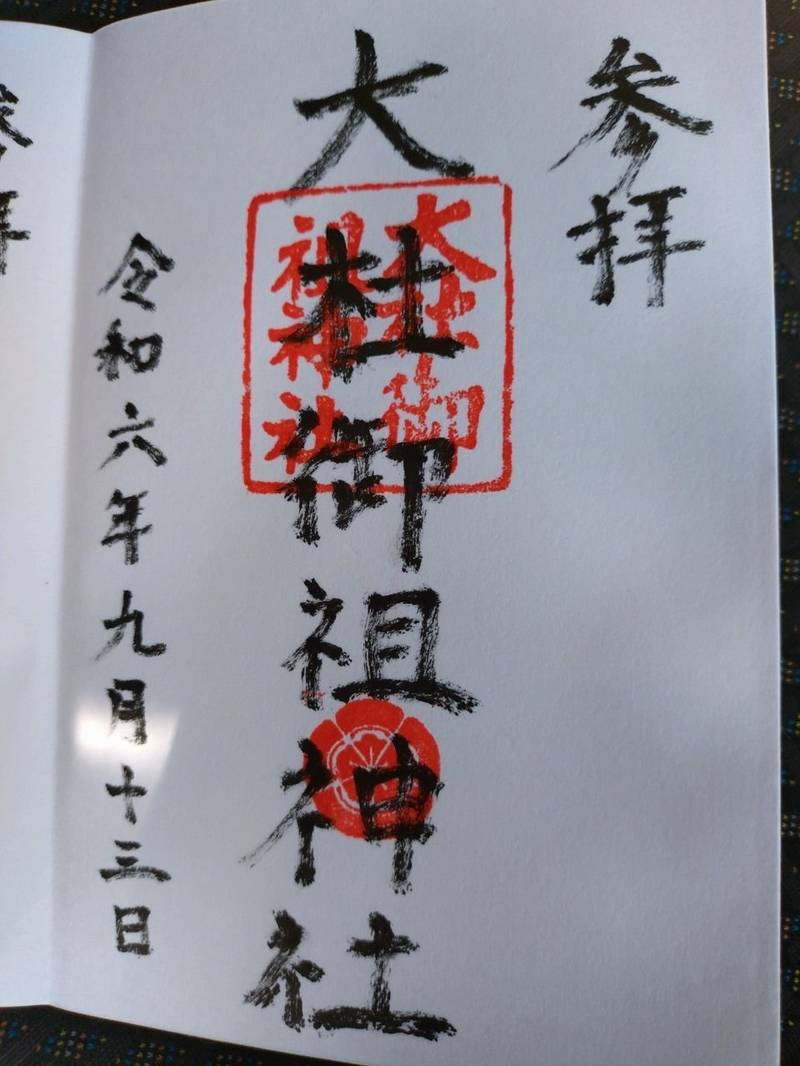 参拝
大杜御祖神社
大杜御
祖神社
令和六年九月十三日